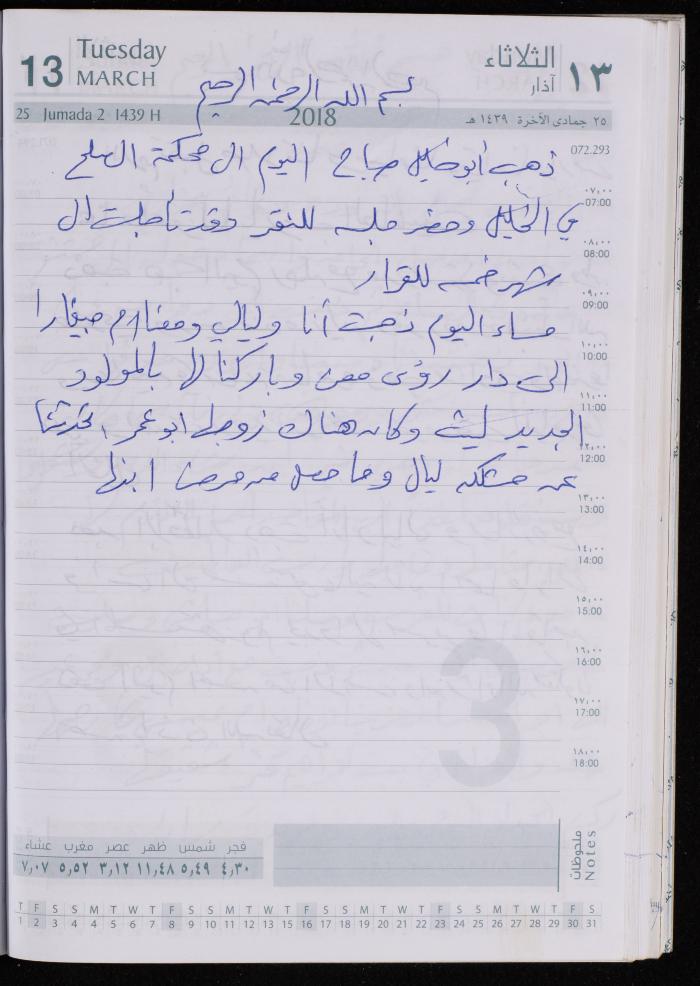 13 Tuesday MARCH
الثلاثاء ١٣ آذار
بسم الله الرحمن الرحيم
25 Jumada 2 1439 H 2018 ٢٥ جمادى الآخرة ١٤٣٩ هـ
072.293
ذهب أبو خليل صباح اليوم الى محكمة الصلح
٠٧,٠٠ 07:00
في الخليل وحضر جلسه للنقر وقد تأجلت ال
٠٨,٠٠ 08:00
شهر خمسه للقرار
٠٩,٠٠ 09:00
مساء اليوم ذهبت أنا وليالي
١٠,٠٠ 10:00
الى دار رؤى معن وباركنا لها بالمولود
١١,٠٠ 11:00
الجديد ليث وكانه هناك زوجها ابو عمر
١٢,٠٠ 12:00
عن مشكله ليال وما حصل من مرض ابنها
١٣,٠٠ 13:00
١٤,٠٠ 14:00
١٥,٠٠ 15:00
١٦,٠٠ 16:00
١٧,٠٠ 17:00
١٨,٠٠ 18:00
3
ملاحظات Notes
فجر شمس ظهر عصر مغرب عشاء
٤,٣٠ ٥,٤٩ ١١,٤٨ ٣,١٢ ٥,٥٢ ٧,٠٧
T F S S M T W T F S S M T W T F S S M T W T F S S M T W T F S
1 2 3 4 5 6 7 8 9 10 11 12 13 14 15 16 17 18 19 20 21 22 23 24 25 26 27 28 29 30 31